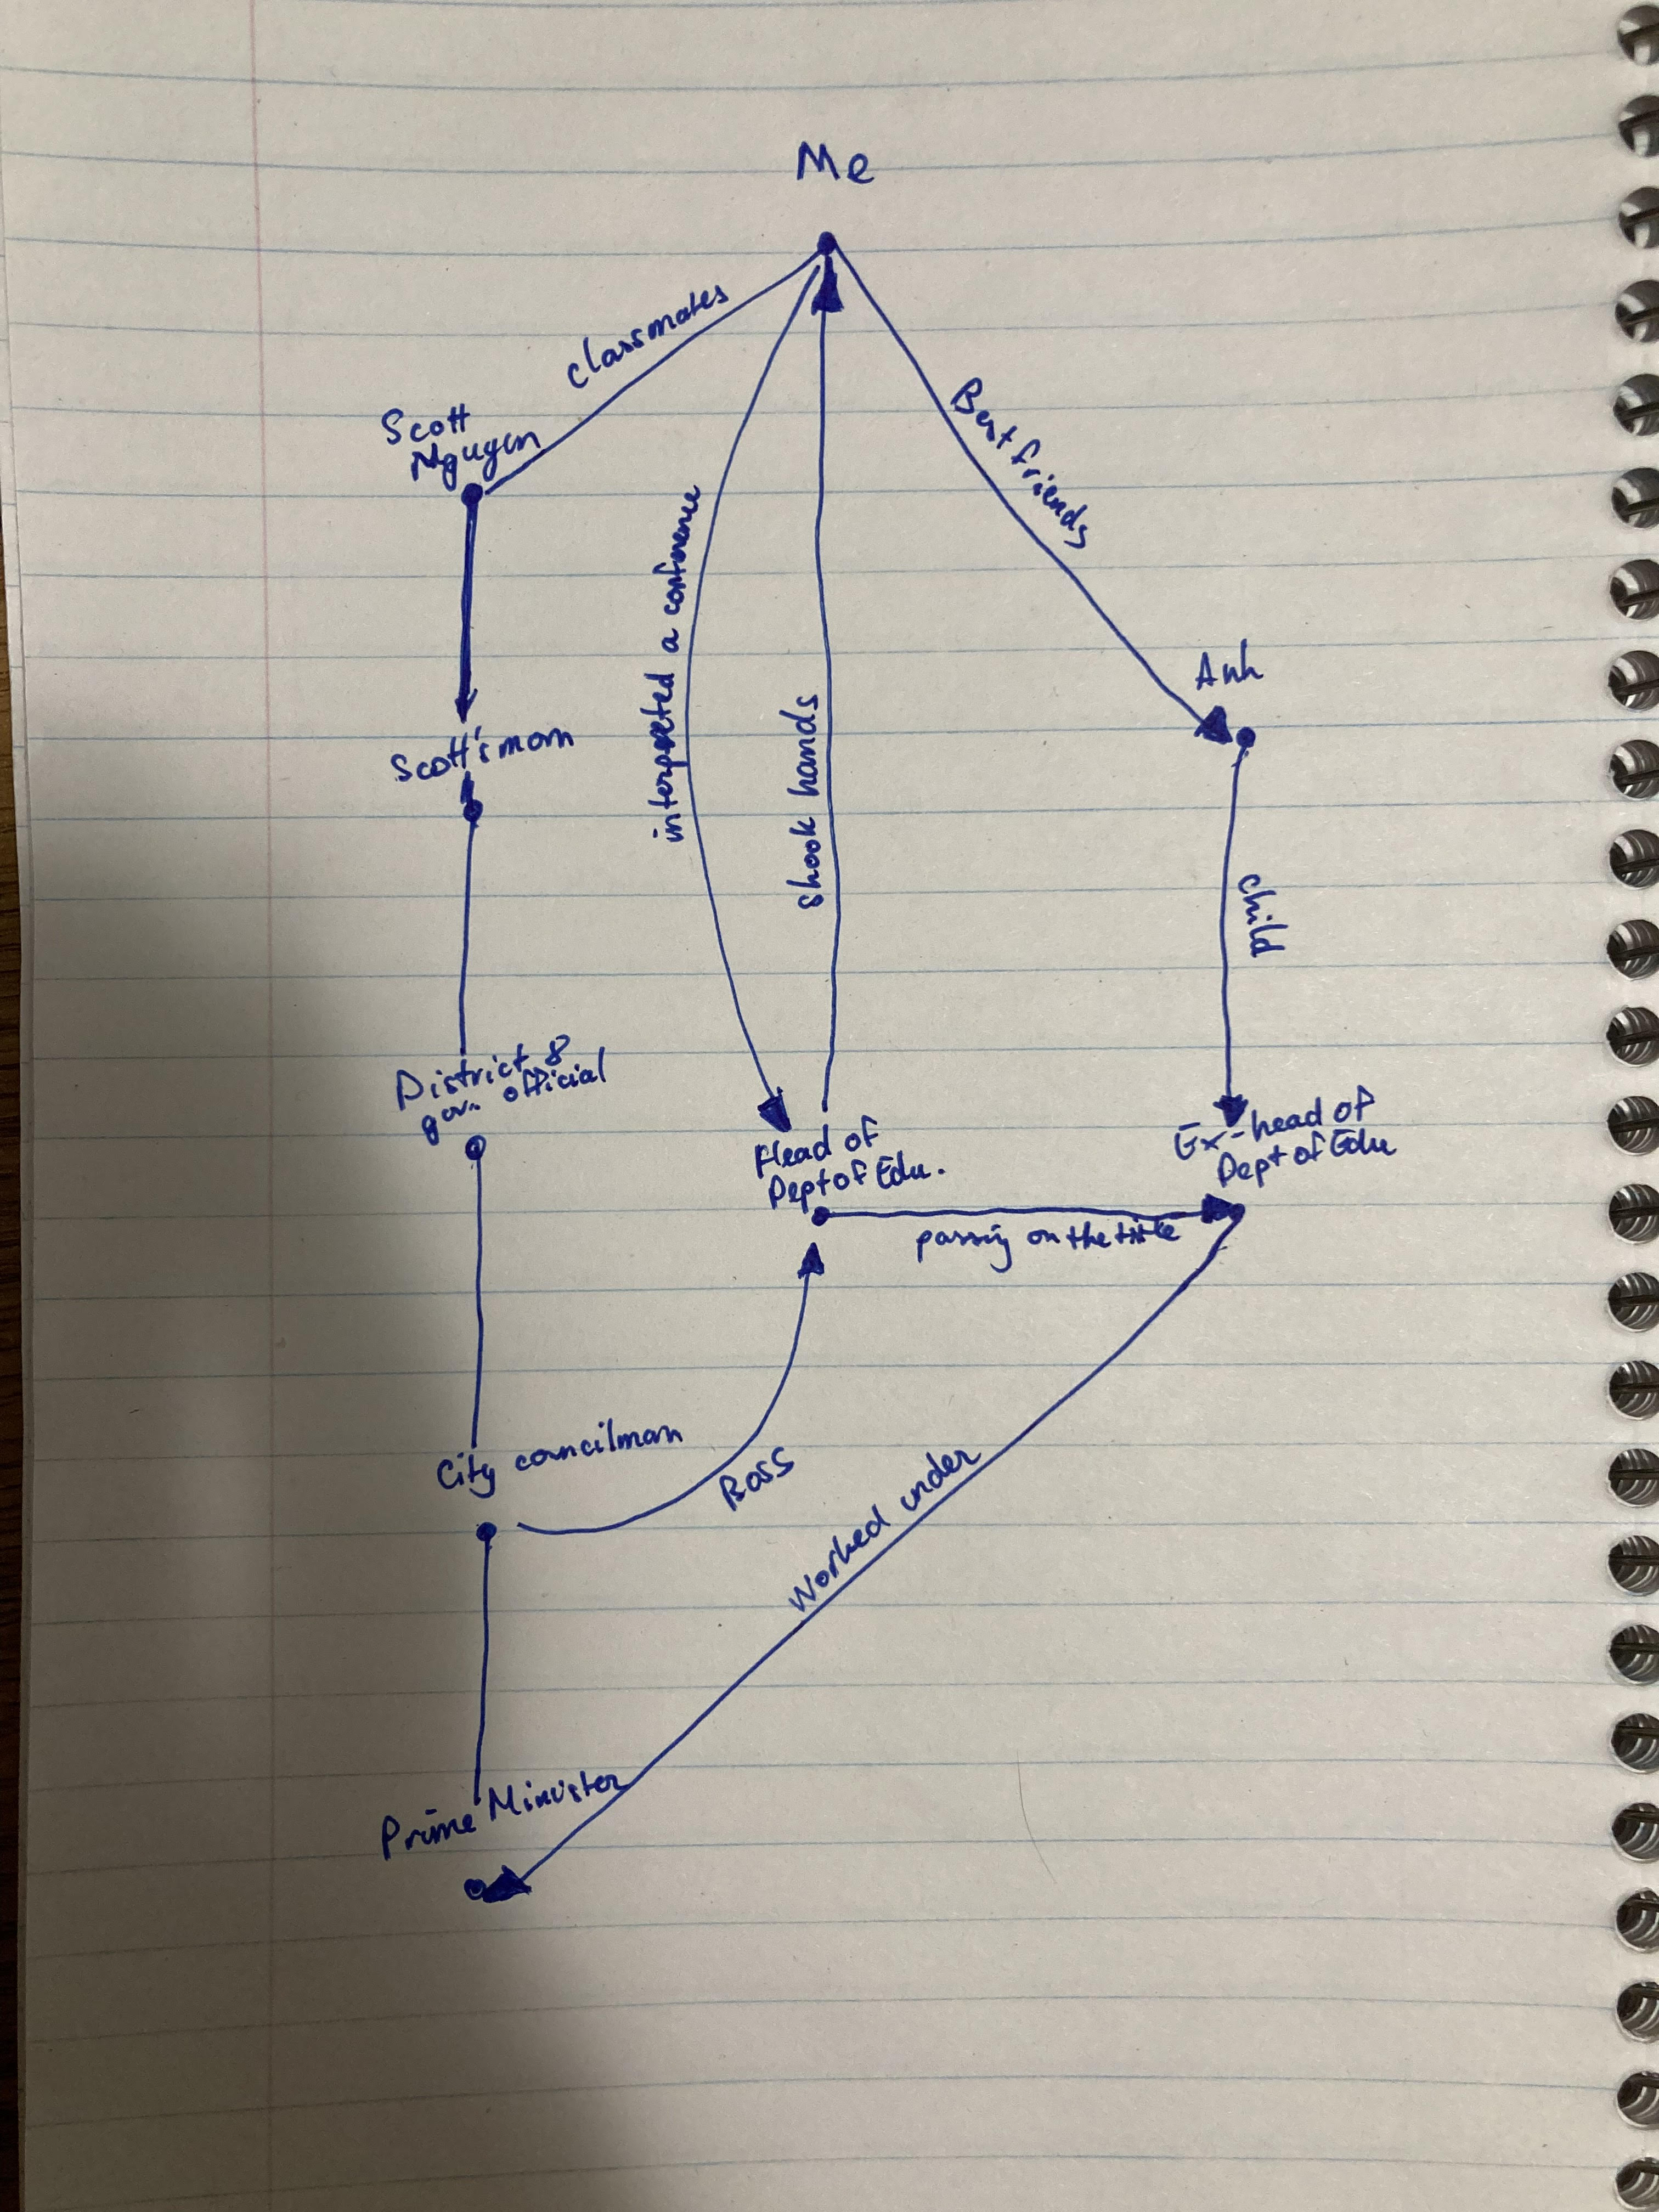 Me
classmates
Scott
Nguyen
Best friends
interpreted a conference
shook hands
Anh
Scott's mom
child
District 8
gov. official
Head of
Dept of Edu.
Ex-head of
Dept of Edu
passing on the title
City councilman
Boss
Worked under
Prime Minister